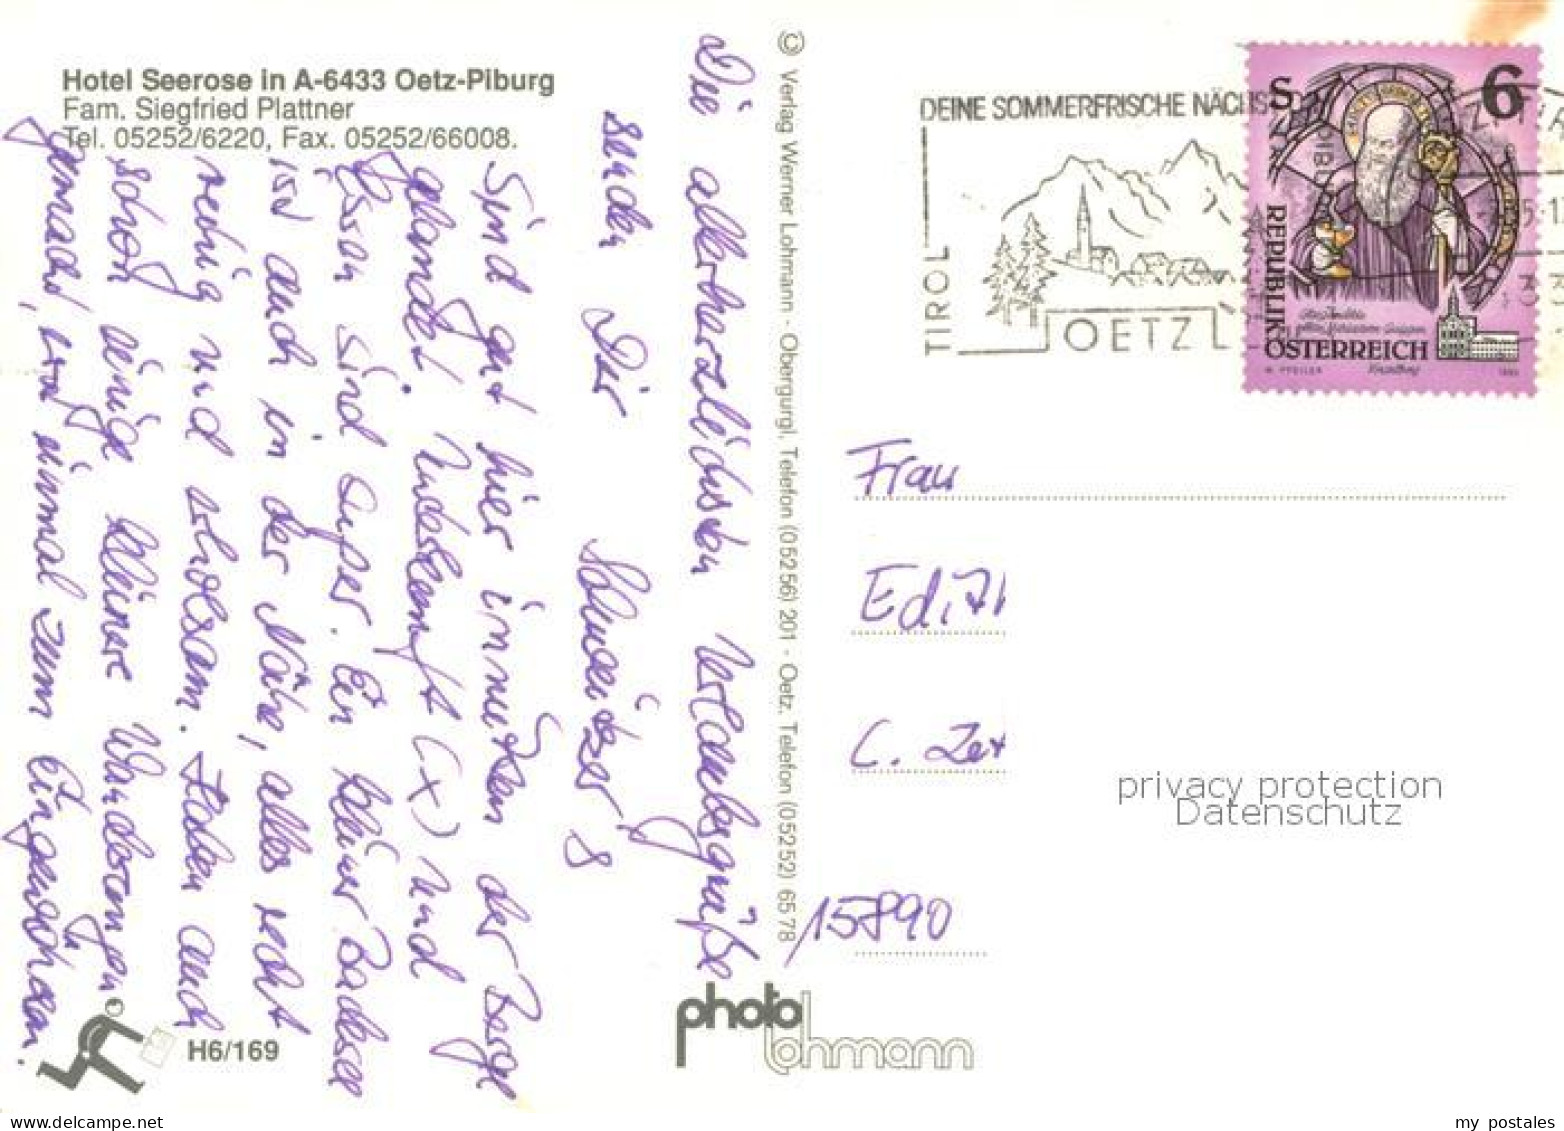 Hotel Seerose in A-6433 Oetz-Piburg
Fam. Siegfried Plattner
Tel. 05252/6220, Fax. 05252/66008.
Die allerherzlichsten Urlaubsgrüße
senden Dir Schweitzer's
Sind gut hier inmitten der Berge
gelandet. Unterkunft (x) und
Essen sind super. Ein kleiner Badesee
ist auch in der Nähe, alles recht
ruhig und erholsam. Haben auch
schon einige kleinere Wanderungen
gemacht, erst einmal zum Eingewöhnen.
H6/169
© Verlag Werner Lohmann - Obergurgl, Telefon (05256) 201 - Oetz, Telefon (05252) 6578
photo
lohmann
DEINE SOMMERFRISCHE NÄCHS
TIROL
OETZ
S 6
REPUBLIK
ÖSTERREICH
W. PFEILER
1993
Frau
Edith
C. Zet
15890
privacy protection
Datenschutz
my postales
www.delcampe.net